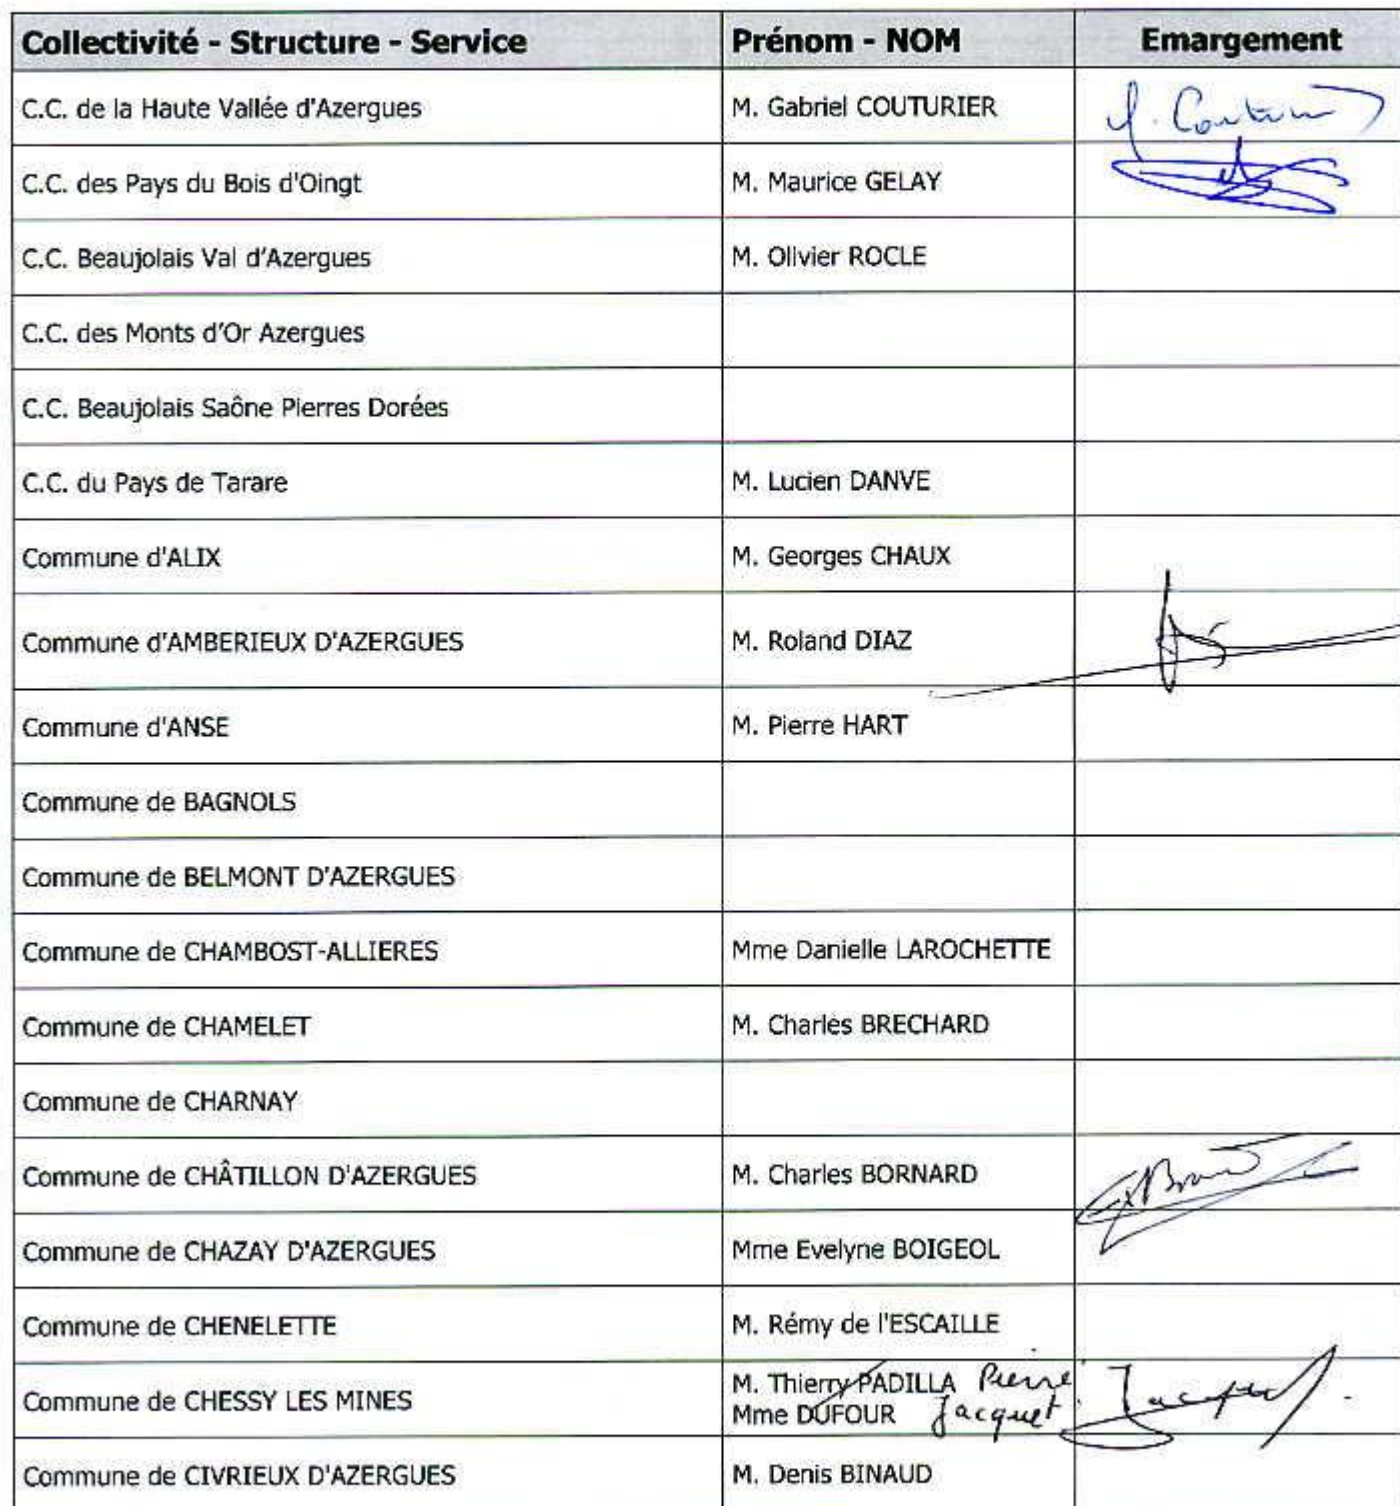 Collectivité - Structure - Service Prénom - NOM Emargement
C.C. de la Haute Vallée d'Azergues M. Gabriel COUTURIER
C.C. des Pays du Bois d'Oingt M. Maurice GELAY
C.C. Beaujolais Val d'Azergues M. Olivier ROCLE
C.C. des Monts d'Or Azergues
C.C. Beaujolais Saône Pierres Dorées
C.C. du Pays de Tarare M. Lucien DANVE
Commune d'ALIX M. Georges CHAUX
Commune d'AMBERIEUX D'AZERGUES M. Roland DIAZ
Commune d'ANSE M. Pierre HART
Commune de BAGNOLS
Commune de BELMONT D'AZERGUES
Commune de CHAMBOST-ALLIERES Mme Danielle LAROCHETTE
Commune de CHAMELET M. Charles BRECHARD
Commune de CHARNAY
Commune de CHÂTILLON D'AZERGUES M. Charles BORNARD
Commune de CHAZAY D'AZERGUES Mme Evelyne BOIGEOL
Commune de CHENELETTE M. Rémy de l'ESCAILLE
Commune de CHESSY LES MINES M. Thierry PADILLA Pierre
Mme DUFOUR Jacquet
Commune de CIVRIEUX D'AZERGUES M. Denis BINAUD